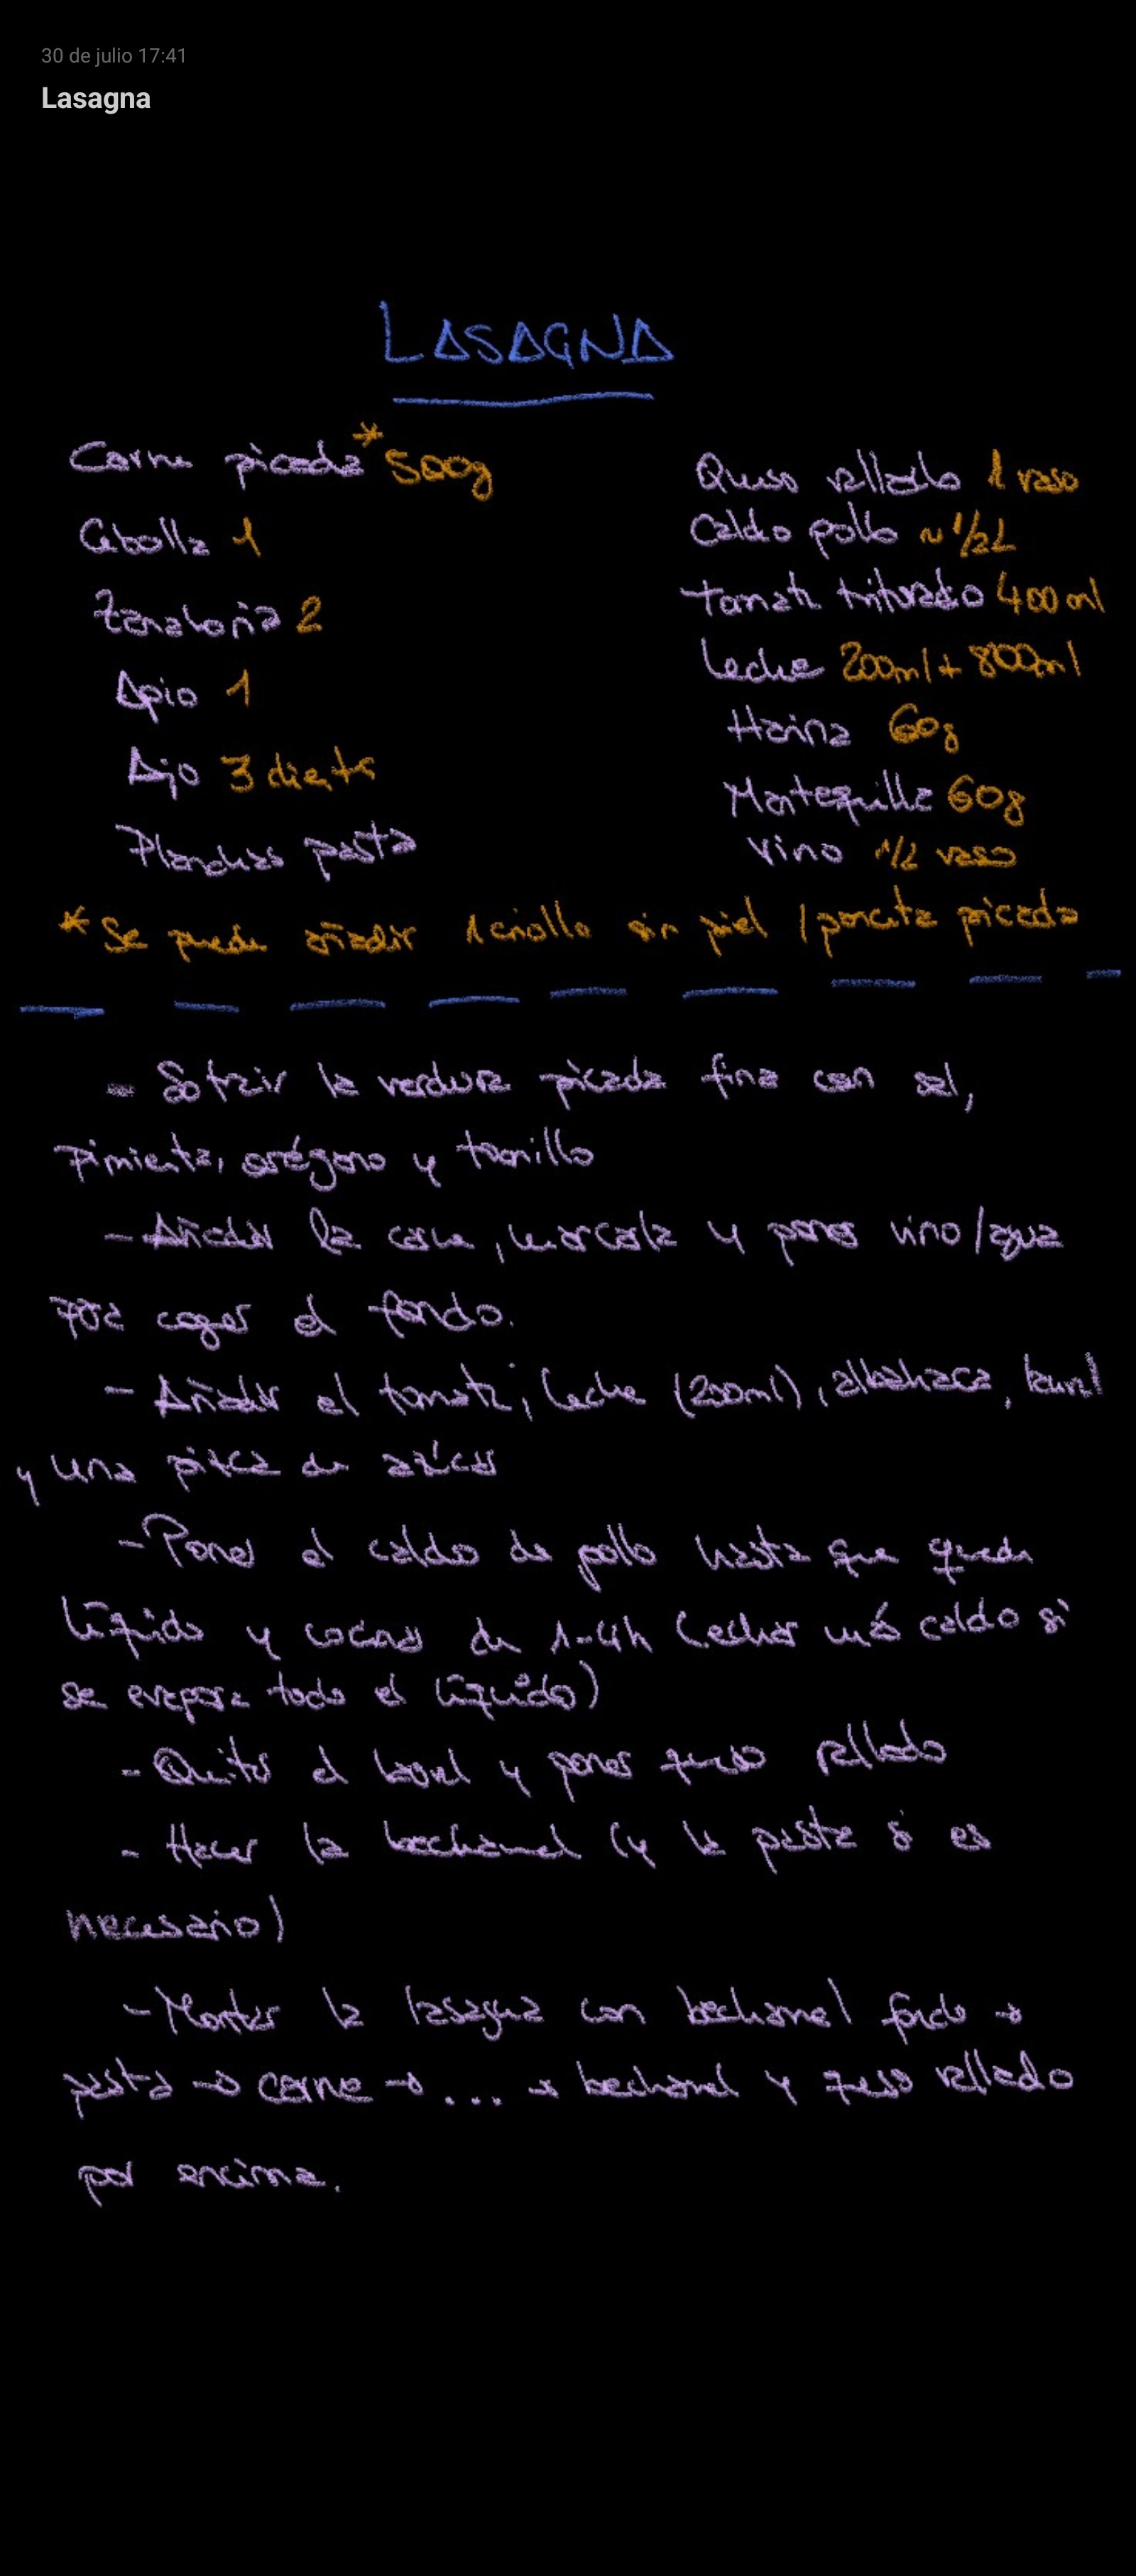 30 de julio 17:41
Lasagna
LASAGNA
Carne picada* 500g
Cebolla 1
Zanahoria 2
Apio 1
Ajo 3 dientes
Planchas pasta
Queso rallado 1 vaso
Caldo pollo ~ 1/2L
Tomate triturado 400ml
Leche 200ml + 800ml
Harina 60g
Mantequilla 60g
Vino 1/2 vaso
* Se puede añadir 1 criollo sin piel / panceta picada
- Sofreir la verdura picada fina con sal,
pimienta, orégano y tomillo
- Añadir la carne, marcarla y poner vino/agua
para coger el fondo.
- Añadir el tomate, leche (200ml), albahaca, laurel
y una pizca de azúcar
- Poner el caldo de pollo hasta que quede
líquido y cocinar de 1-4h (echar más caldo si
se evapora todo el líquido)
- Quitar el laurel y poner queso rallado
- Hacer la bechamel (y la pasta si es
necesario)
- Montar la lasagna con bechamel fondo →
pasta → carne → ... → bechamel y queso rallado
por encima.